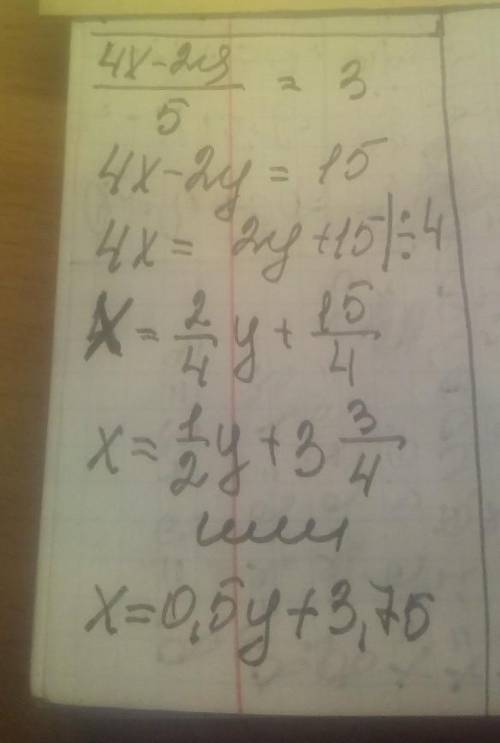 (4x-2y)/5 = 3
4x-2y = 15
4x = 2y+15 | ÷4
x = 2/4 y + 15/4
x = 1/2 y + 3 3/4
или
x = 0,5y + 3,75